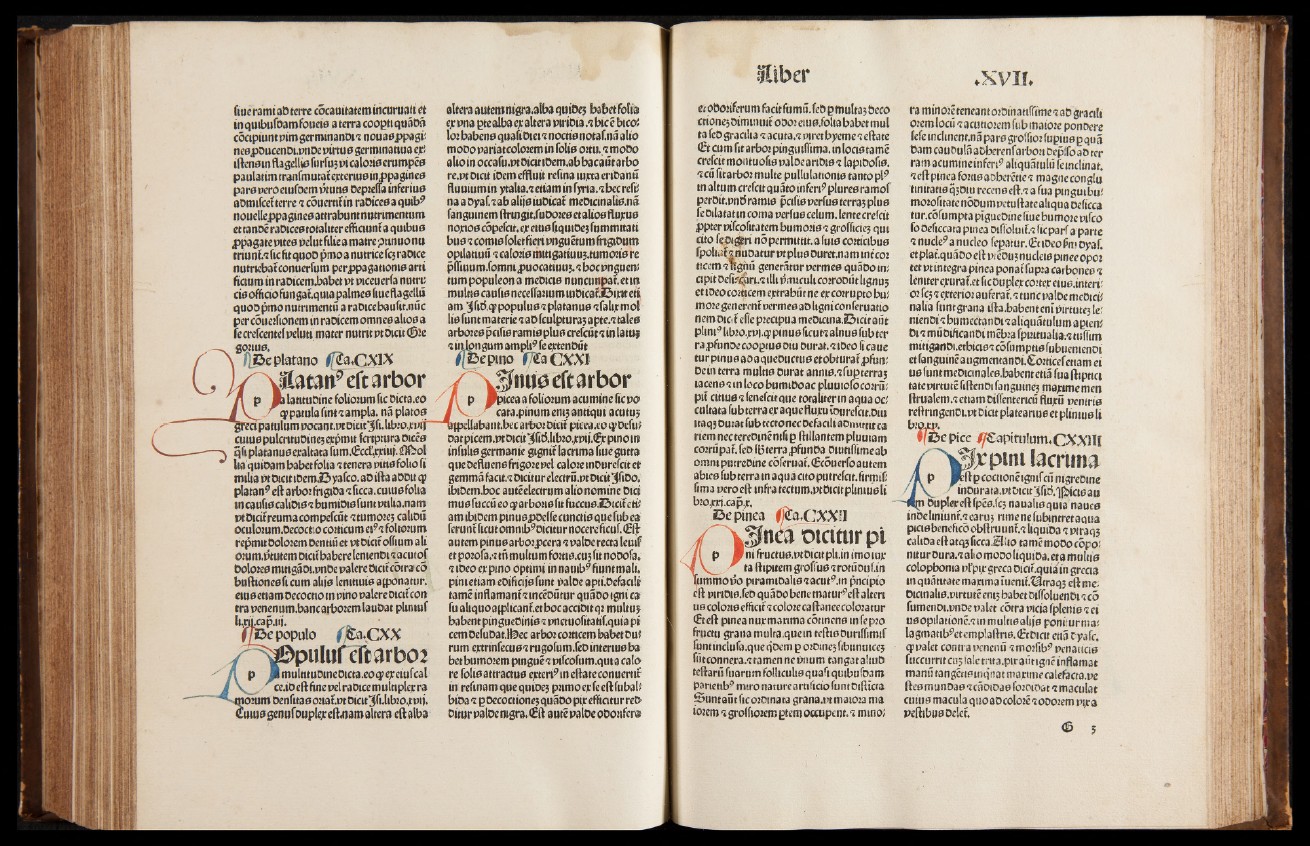 siue rami ad terre cōcauitatem incuruati et
in quibusdam foueis a terra coopti quādā
cōcipiunt vim germinandi ⁊ nouas ꝓpagi⸗
nes ꝓducendi. vnde virtus germinatiua ex⸗
istens in flagellis sursuȝ vi caloris erumpēs
paulatim transmutat exterius in ꝓpagines
pars vero eiusdem v̄tutis depressa inferius
admiscet terre ⁊ cōuertit in radices a quibꝰ
nouelle ꝓpagines attrabunt nutrimentum
et tandē radices totaliter efficiunt a quibus
ꝓpagate vites velut filie a matre
triunt. ⁊ sic fit quod p̄mo a nutrice sȝ radice
nutriebat conuersum per ꝓpagationis arti
ficium in radicem. habet vt viceversa nutri⸗
cis officio fungat. quia palmes siue flagellū
quod p̄mo nutrimentū a radice bausit. nūc
per cōuersionem in radicem omnes alios a
se crescentes velut mater nutrit vt dicit Gre
gorius.
De platano Ca. CXIX
Platanꝰ est arbor
p a latitudine foliorum sic dicta. eo
ꝙ patula sint ⁊ ampla. nā platos
greci patulum vocant. vt dicit Isi. libro. xvij
cuius pulcritudineȝ exp̄mit scriptura dicēs
q̄si platanus exaltata sum. Eccl. xxiiij. Mol
lia quidam habet folia ⁊ tenera vitis folio si
milia vt dicit idem. Dyasco. ad ista addit ꝙ
platanꝰ est arbor frigida ⁊ sicca. cuius folia
in causis calidis ⁊ humidis sunt vtilia. nam
vt dicit reuma compescūt ⁊ tumores calidū
oculorum. decoctio corticum eiꝰ ⁊ foliorum
rep̄mit dolorem dentiū et vt dicit ossium ali
orum. v̄tutem dicit habere leniendi ⁊ acutos
dolores mitigādi. vnde valere dicit cōtra cō
bustiones si cum alijs lenitiuis apponatur.
eius etiam decoctio in vino valere dicit con
tra venenum. banc arborem laudat plinius
li. xij. cap̄. ij.
De populo Ca. CXX
Populus est arbor
p a multitudine dicta. eo ꝙ ex eius cal
ce. id est fine vel radice multiplex ra
morum densitas orat. vt dicit Isi. libro. xvij.
Cuius genus duplex est. nam altera est alba
altera autem nigra. alba quideȝ habet folia
ex vna pte alba ex altera viridia. ⁊ hic ē bico⸗
lor habens quasi diei ⁊ noctis notas. nā alio
modo variat colorem in solis ortu. ⁊ modo
alio in occasu. vt dicit idem. ab bac aūt arbo
re. vt dicit idem effluit resina iuxta eridanū
fluuium in ytalia. ⁊ etiam in syria. ⁊ hec resi⸗
na a dyas. ⁊ ab alijs iudicat medicinalis. nā
sanguinem stringit. sudores et alios fluxus
noxios cōpescit. ex eius siquideȝ summitati
bus ⁊ comis solet fieri vnguētum frigidum
opilatiuū ⁊ caloris mitigatiuuȝ. tumoris re
p̄ssiuum. somni ꝓuocatiuuȝ. ⁊ hoc vnguen⸗
tum populeon a medicis nuncupat. et in
multis causis necessarium iudicat. Dixit eti
am Isid. ꝙ populus ⁊ platanus ⁊ salix mol
lis sunt materie ⁊ ad sculpturaȝ apte. ⁊ tales
arbores p̄cisis ramis plus crescūt ⁊ in latum
⁊ in longum ampliꝰ se extendūt
De pino Ca CXXI
Pinus est arbor
p picea a foliorum acumine sic vo
cata. pinum eniȝ antiqui acutuȝ
appellabant. hec arbor dicit picea. eo ꝙ desu⸗
dat picem. vt dicit Isid. libro. xvij. Ex pino in
insulis germanie gignit lacrima siue gutta
que defluens frigore vel calore indurescit et
gemmā facit. ⁊ dicitur electrū. vt dicit Isido.
ibidem. hoc autē electrum alio nomine dici
mus succū eo ꝙ arboris sit succus. Dicit eti⸗
am ibidem pinus ꝓdesse cunctis que sub ea
serunt sicut omnibꝰ dicitur nocere ficus. Est
autem pinus arbor ꝓcera ⁊ valde recta leuis
et porosa. ⁊ tn̄ multum fortis. cuȝ sit nodosa.
⁊ ideo ex pino optimi in nauibꝰ fiunt mali.
pini etiam edificijs sunt valde apti. de facili
tamē inflamant ⁊ incēdūtur quādo igni ca⸗
su aliquo applicant. et hoc accidit qr multuȝ
habent pinguedinis ⁊ vnctuositatis. quia pi
cem desudat. Hec arbor corticem habet du⸗
rum extrinsecus ⁊ rugosum. sed interius ba
bet humorem pinguē ⁊ viscosum. qui a calo⸗
re solis attractus exteriꝰ in estate conuertit
in resinam que quideȝ primo ex se est subal⸗
bida ⁊ p decoctioneȝ quādo pix efficitur red⸗
ditur valde nigra. Est autē valde odorifera
Liber .XVII.
et odoriferum facit fumū. sed p multaȝ deco
ctioneȝ diminuit odor eius. folia habet mul
ta sed gracilia ⁊ acuta. ⁊ viret hyeme ⁊ estate
Et cum sit arbor pinguissima. in locis tamē
crescit montuosis valde aridis ⁊ lapidosis.
⁊ cū sit arbor multe pullulationis tanto plꝰ
in altum crescit quāto inferiꝰ plures ramos
perdit. vnd ramis p̄cisis versus terraȝ plus
se dilatat in coma versus celum. lente crescit
ꝓpter viscositatem humoris ⁊ grossicieȝ qui
cito se digeri nō permittit. a suis corticibus
⁊ nudatur vt plus duret. nam int cor
ticem ⁊ lignū generātur vermes quādo in⸗
cipit ⁊ illi v̄miculi corrodūt lignuȝ
et ideo corticem extrabūt ne ex corrupto bu⸗
more generent vermes ad ligni conseruatio
nem dict esse precipua medicina. Dicit aūt
pliniꝰ libro. xvj. ꝙ pinus sicut ⁊ alnus sub ter
ra ꝓfunde coopius diu durat. ⁊ ideo si caue
tur pinus ad aqueductus et obturat ꝓfun⸗
de in terra multis durat annis. ⁊ sup terraȝ
iacens ⁊ in loco humido ac pluuioso corrū⸗
pit citius ⁊ senescit que totaliter in aqua oc⸗
cultata sub terra ex aque fluxu indurescit. diu
itaqȝ durat sub tecto nec de facili admittit ca
riem nec teredinē nisi p stillantem pluuiam
corrūpat. sed sub terra ꝓfunda diutissime ab
omni putredine cōseruat. Ecōuerso autem
abies sub terra in aqua cito putrescit. firmis⸗
sima vero est infra tectum. vt dicit plinius li
bro. xvi. cap̄. x.
De pinea Ca. CXXII
Pinea dicitur pi
p ni fructus. vt dicit pli. in imo iux
ta stipitem grossus ⁊ rotūdus. in
summo v̄o piramidalis ⁊ acutꝰ. in p̄ncipio
est viridis. sed quādo bene maturꝰ est alteri
us coloris efficit ⁊ colore castanee coloratur
Et est pinea nux maxima cōtinens in se pro
fructu grana multa. que in testis durissimis
sunt inclusa. que q̄dem p ordineȝ sibi inuiceȝ
sūt connexa. ⁊ tamen ne vnum tangat aliud
testarū suarum folliculis quasi quibusdam
parietibꝰ miro nature artificio sunt distincta
Sunt aūt sic ordinata grana. vt maiora ma
iorem ⁊ grossiorem ptem occupent. ⁊ mino⸗
ra minorē teneant ordinatissime ⁊ ad gracili
orem locū ⁊ acutiorem sub maiore pondere
sese inclinent. nā pars grossior supius p quā
dam caudulā adherens arbori dep̄sso ad ter
ram acumine inferiꝰ aliquātulū se inclinat.
⁊ est pinea fortis adherētie ⁊ magne conglu
tinitatis q̄diu recens est. ⁊ a sua pinguibu⸗
morositate nōdum vetustate aliqua desicca
tur. cōsumpta pīguedine siue humore visco
so desiccata pinea dissoluit. ⁊ sic pars a parte
⁊ nucleꝰ a nucleo sepatur. Et ideo fm dyas.
et plat. quādo est nucleis pinee opor
tet vt integra pinea ponat supra carbones ⁊
leniter exurat. et sic duplex cortex eius. interi⸗
or sȝ ⁊ exterior auferat. ⁊ tunc valde medici⸗
nalia sunt grana ista. habent eni virtuteȝ le⸗
niendi ⁊ humectandi ⁊ aliquātulum apien⸗
di ⁊ mūdificandi mēbra spiritualia. ⁊ tussim
mitigandi. ethicis ⁊ cōsumptis subueniendi
et sanguinē augmentandi. Cortices etiam ei
us sunt medicinales. habent etiā sua stiptici
tate virtutē sistendi sanguineȝ maxime men
strualem. ⁊ etiam dissentericū fluxū ventris
restringendi. vt dicit platearius et plinius li
bro. xv.
De pice Capitulum. CXXIII
Pix pini lacrima
p est p coctionē ignis cū nigredine
indurata. vt dicit Isid. Ipicis au
tem duplex est spēs. sȝ naualis quia naues
inde liniunt. ⁊ earuȝ rime ne subintret aqua
picis beneficō obstruunt. ⁊ liquida ⁊ vtraqȝ
calida est atqȝ sicca. Alio tamē modo cōpo⸗
nitur dura. ⁊ alio modo liquida. et a multis
colophonia vl pix greca dicit. quia in grecia
in quātitate maxima īuenit. Utraqȝ est me⸗
dicinalis. virtutē eniȝ habet dissoluendi ⁊ cō
sumendi. vnde valet cōtra vicia splenis ⁊ ei
us opilationē. ⁊ in multis alijs ponitur ma⸗
lagmatibꝰ et emplastris. Et dicit etiā dyasc.
ꝙ valet contra venenū ⁊ morsibꝰ venaticis
succurrit cuȝ sale trita. pix aūt ignē inflamat
manū tangētis inqnat maxime calefacta. ve
stes mundas ⁊ cādidas sordidat ⁊ maculat
cuius macula quo ad colorē ⁊ odorem vix a
vestibus delet.
G 5